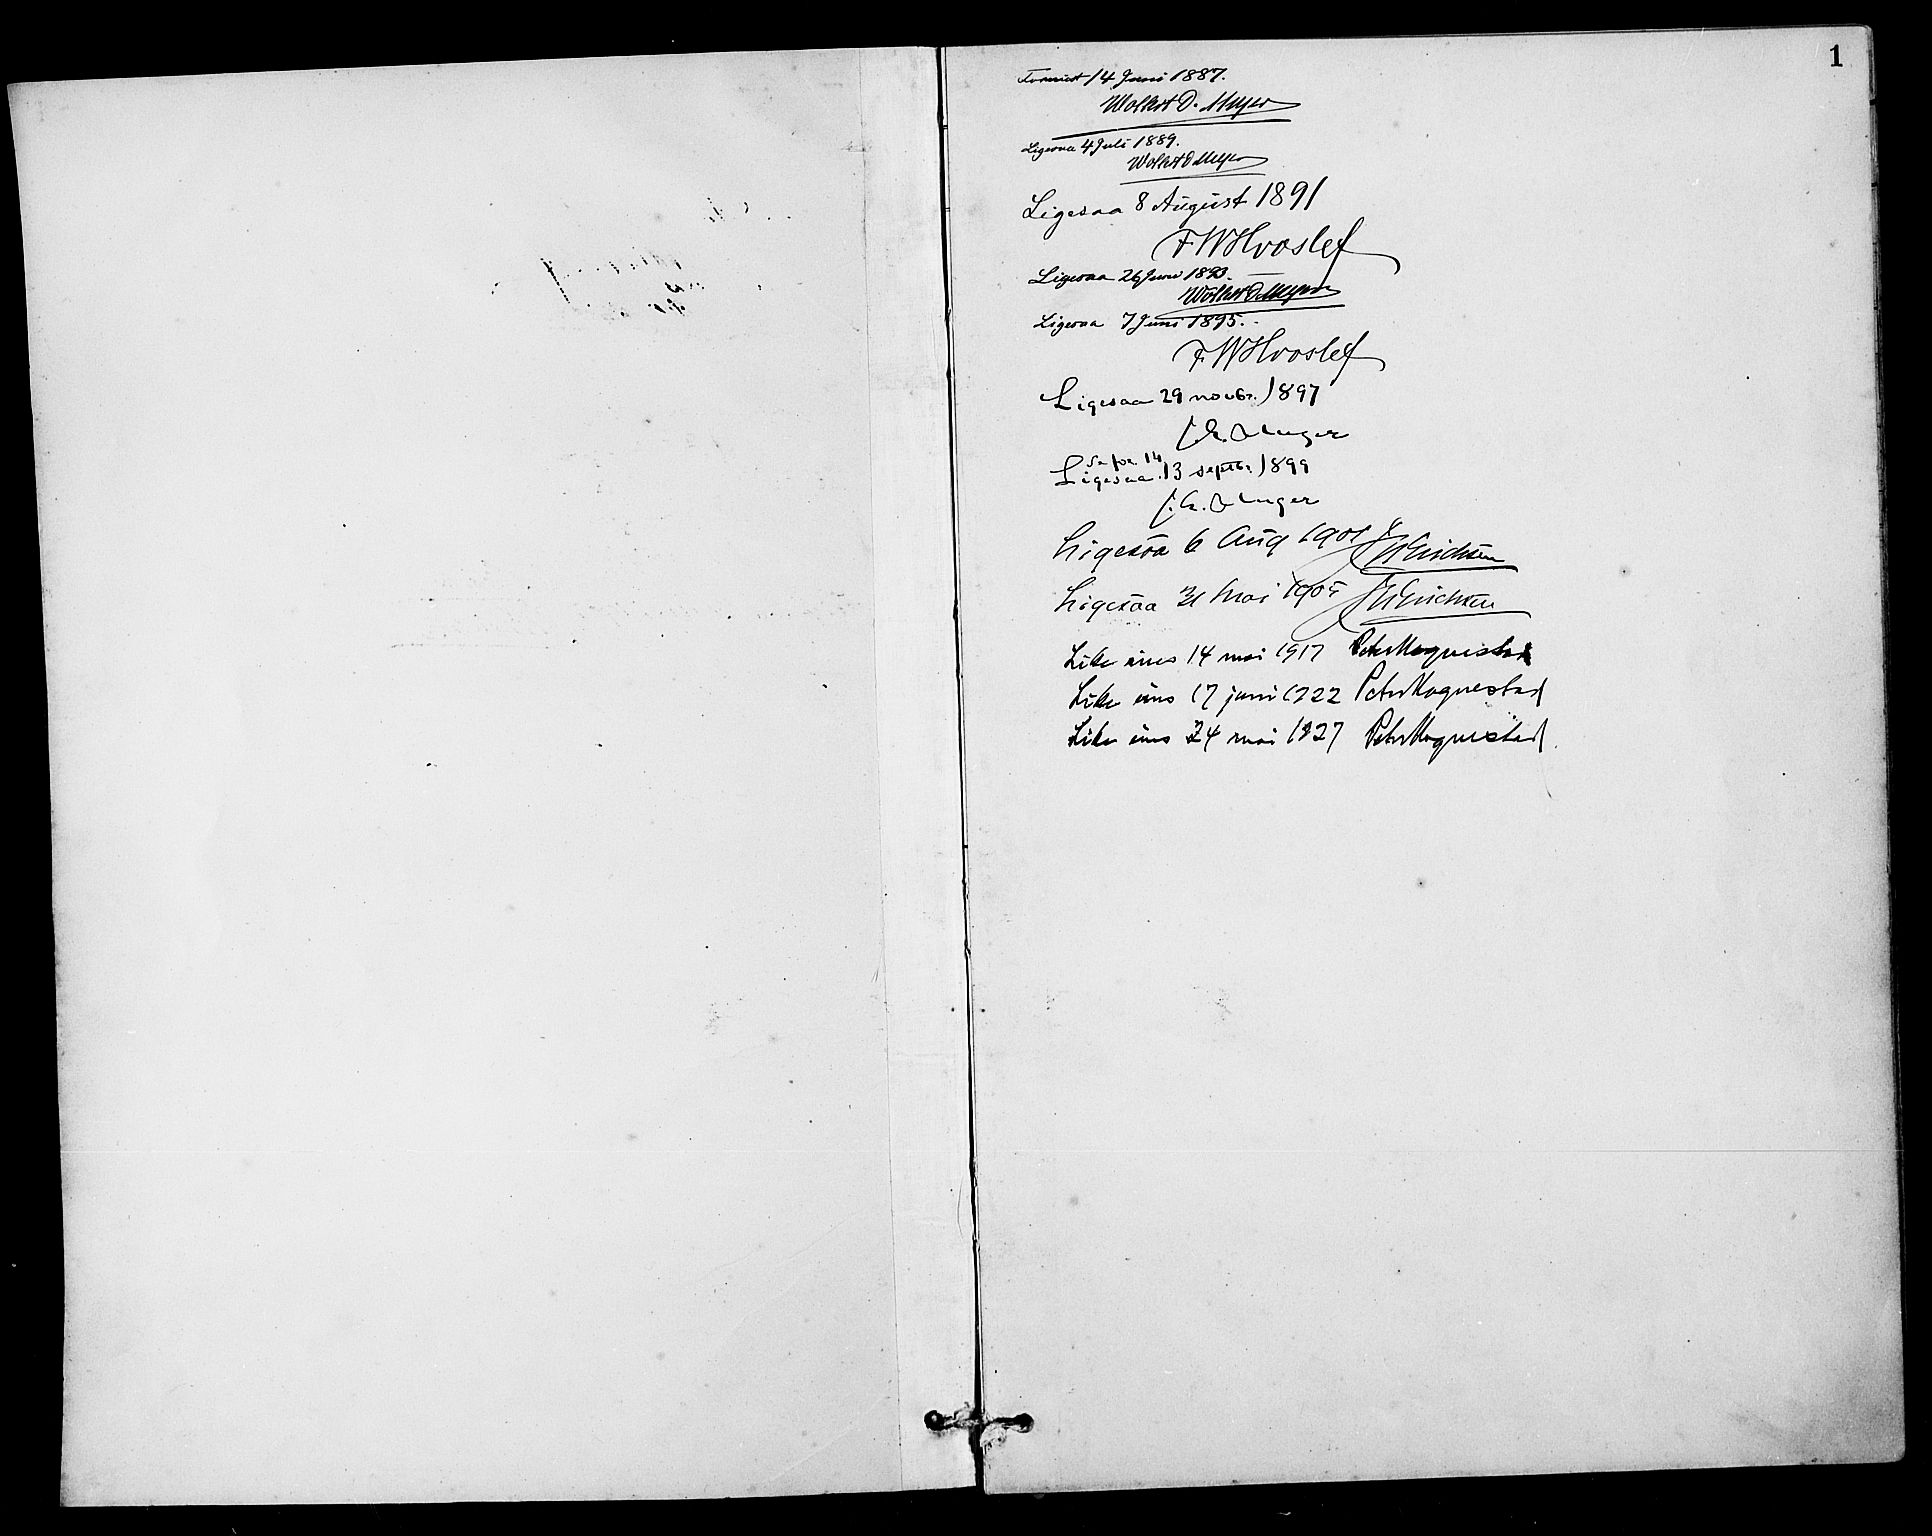 1
14 Juni 1887.
Wolkert D. Meyer
Ligesaa 4 Juli 1889.
Wolkert D Meyer
Ligesaa 8 August 1891
F W Hvoslef
Ligesaa 26 Juni 1893.
Wolkert D Meyer
Ligesaa 7 Juni 1895.
F W Hvoslef
Ligesaa 29 novbr. 1897
Unger
14
Ligesaa 13 septbr. 1899
Unger
Ligesaa 6 Aug 1901 Erichsen
Ligesaa 31 Mai Erichsen
Like eins 14 mai 1917 Peter Hognestad
Like eins 17 juni 1922 Peter Hognestad
Like eins 24 mai 1927 Peter Hognestad